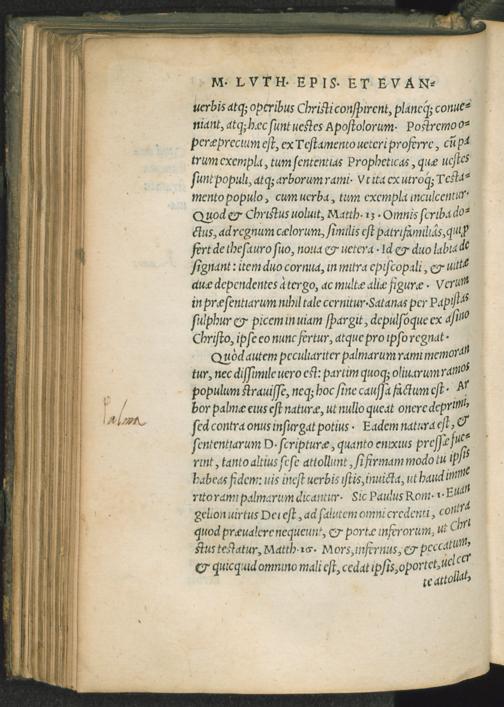 M. LVTH. EPIS. ET EVAN=
uerbis atq; operibus Christi conspirent, planeq́; conue=
niant, atq; hæc sunt uestes Apostolorum. Postremo o=
peræprecium est, ex Testamento ueteri proferre, cũ pa
trum exempla, tum sententias Propheticas, quæ uestes
sunt populi, atq; arborum rami. Vt ita ex utroq; Testa=
mento populo, cum uerba, tum exempla inculcentur.
Quod & Christus uoluit, Matth. 13. Omnis scriba do=
ctus, ad regnum cælorum, similis est patrifamiliâs, qui p
fert de thesauro suo, noua & uetera. Id & duo labia de
signant: item duo cornua, in mitra episcopali, & uittæ
duæ dependentes à tergo, ac multæ aliæ figuræ. Verum
in præsentiarum nihil tale cernitur. Satanas per Papistas
sulphur & picem in uiam spargit, depulsoque ex asino
Christo, ipse eo nunc fertur, atque pro ipso regnat.
Quòd autem peculiariter palmarum rami memoran
tur, nec dissimile uero est: partim quoq; oliuarum ramos
populum strauisse, neq; hoc sine caussa factum est. Ar
bor palmæ eius est naturæ, ut nullo queat onere deprimi,
sed contra onus insurgat potius. Eadem natura est, &
Palma
sententiarum D. scripturæ, quanto enixius pressæ fue=
rint, tanto altius sese attollunt, si firmam modo tu ipsis
habeas fidem: uis inest uerbis istis, inuicta, ut haud imme
rito rami palmarum dicantur. Sic Paulus Rom. 1. Euan
gelion uirtus Dei est, ad salutem omni credenti, contra
quod præualere nequeunt, & portæ inferorum, ut Chri
stus testatur, Matth. 16. Mors, infernus, & peccatum,
& quicquid omnino mali est, cedat ipsis, oportet, uel cer
te attollat,